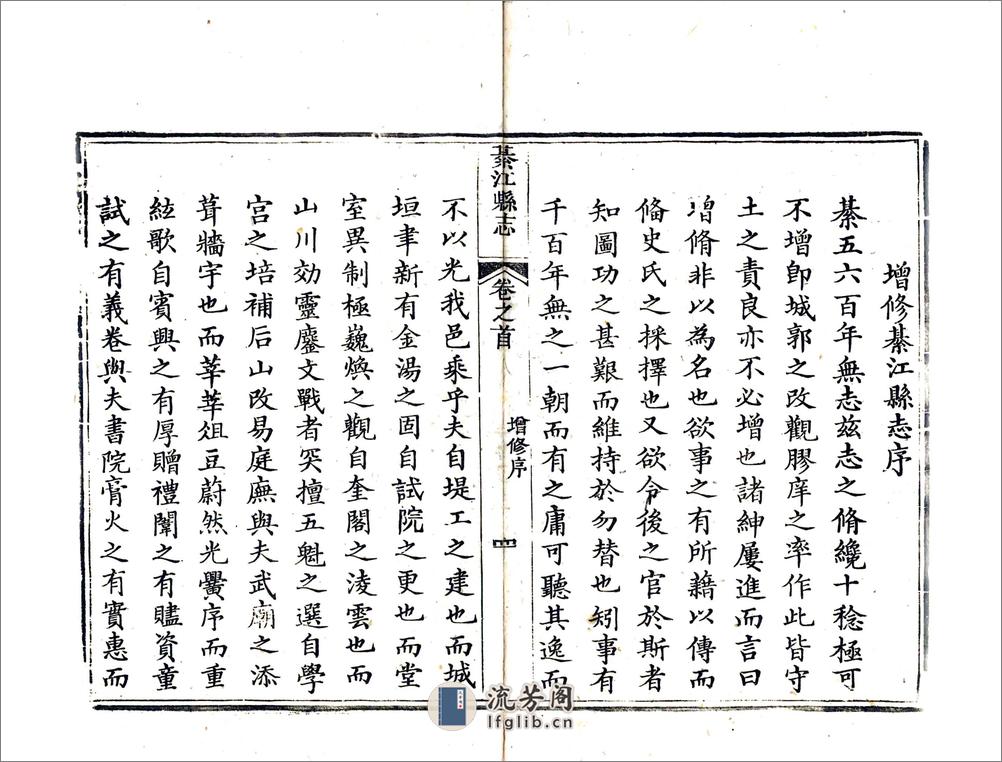 增修綦江縣志序
綦五六百年無志茲志之脩纔十稔極可
不增卽城郭之改觀膠庠之率作此皆守
土之責良亦不必增也諸紳屢進而言曰
增脩非以為名也欲事之有所藉以傳而
脩史氏之採擇也又欲令後之官於斯者
知圖功之甚艱而維持於勿替也矧事有
千百年無之一朝而有之庸可聽其逸而
綦江縣志
卷之首
增修序
四
不以光我邑乘乎夫自堤工之建也而城
垣聿新有金湯之固自試院之更也而堂
室異制極巍煥之觀自奎閣之淩雲也而
山川効靈鏖文戰者突擅五魁之選自學
宮之培補后山改易庭廡與夫武廟之添
葺牆宇也而莘莘俎豆蔚然光黌序而重
絃歌自賓興之有厚贈禮闈之有贐資童
試之有義卷與夫書院膏火之有實惠而
流芳阁
lfglib.cn